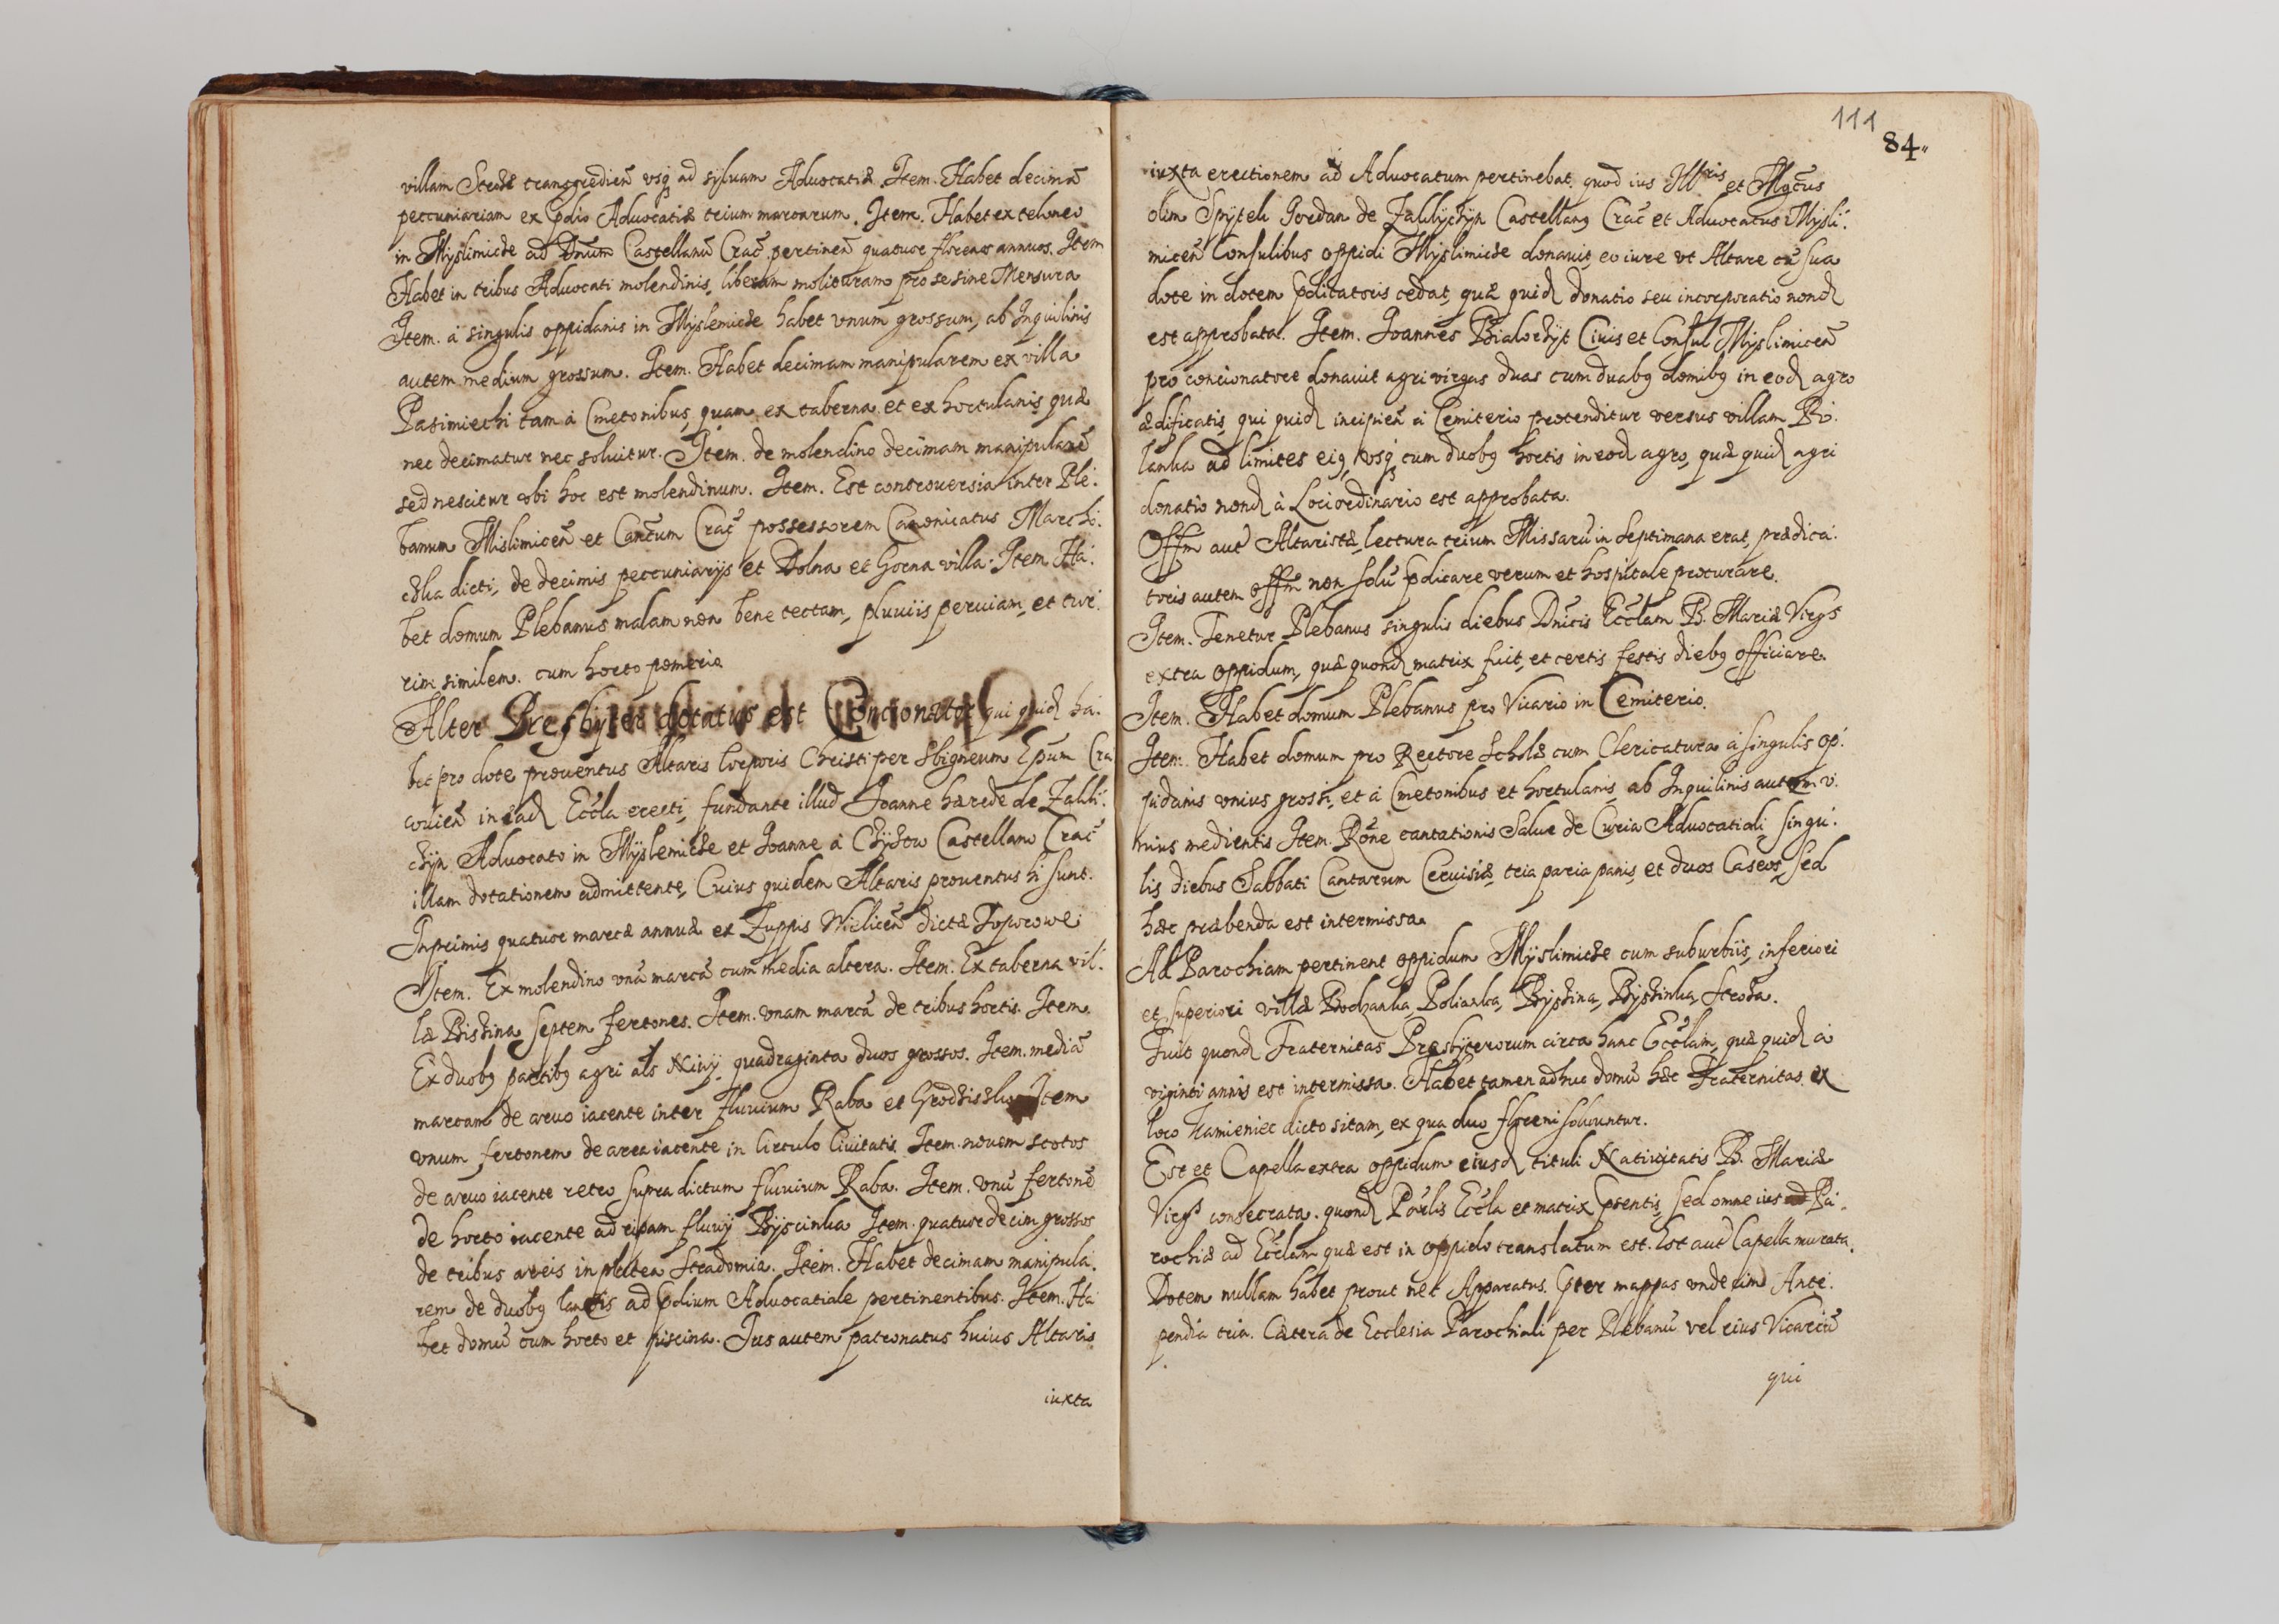 villam Stroze transgredien̄ vsq̨ ad syluam Aduocatiæ. Item. Habet decimā
peccuniariam ex p̄dio Aduocatiæ trium marcarum. Item. Habet ex teloneo
in Myslimicze ad Dnūm Castellanū Crac̄ pertinen̄ quatuor florenos annuos. Item
Habet in tribus Aduocati molendinis, liberam molituram pro se sine Mensura
Item. à singulis oppidanis in Myslemicze habet vnum grossum, ab Inquilinis
autem medium grossum. Item. Habet decimam manipularem ex villa
Pasimiechi tam à Cmetonibus, quam ex taberna et ex hortulanis, quæ
nec decimatur nec soluitur. Item. de molendino decimam manipularē
sed nescitur vbi hoc est molendinum. Item. Est controuersia inter Ple:
banum Mislimicen̄ et Can̄cum Crac̄ possessorem Canonicatus Marchó:
czka dicti, de decimis peccuniarijs et Dolna et Gorna villa. Item. Ha:
bet domum Plebanus malam non bene tectam, pluuiis peruiam, et tur:
rim similem. cum horto pomerio
Alter Presbyter dotatus est Concionator qui quid̨ ha:
bet pro dote prouentus Altaris Corporis Christi per Sbigneum Ep̄um Cra
couien̄ in ead̨ Eccl̄a erecti, fundante illud Joanne hærede de Zakli:
czyn Aduocato in Myslemicze et Joanne à Czyżow Castellano Crac̄
illam dotationem admittente, Cuius quidem Altaris prouentus hi sunt.
Inprimis quatuor marcæ annuæ ex Zuppis Wielicen̄ dictæ Toporowe
Item. Ex molendino vnā marcā cum media altera. Item. Ex taberna vil:
læ Bistina, septem fertones. Item. vnam marcā de tribus hortis. Item.
Ex duobq̨ partibq̨ agri al̄s Niwy quadraginta duos grossos. Item. mediā
marcam de aruo iacente inter fluuium Raba et Grodzisko Item
vnum fertonem de area iacente in Circulo Ciuitatis. Item. nouem scotos
de aruo iacente retro supra dictum fluuium Raba. Item. vnū fertonē
de horto iacente ad ripam fluuij Byscinka Item. quatuordecim grossos
de tribus areis in platea Stradomia. Item. Habet decimam manipula:
rem de duobq̨ laneis ad p̄dium Aduocatiale pertinentibus. Item. Ha
bet domū cum horto et piscina. Jus autem patronatus huius Altaris
iuxta
111
84.
iuxta erectionem ad Aduocatum pertinebat. quod ius Ill^ris et Mgc̄us
olim Spytek Jordan de Zaklyczyn Castellanq̨ Crac̄ et Aduocatus Mysli:
micen̄ Consulibus oppidi Myslimicze donauit, eo iure vt Altare cū sua
dote in dotem p̄dicatoris cedat, quæ quid̨ donatio seu incorporatio nond̨
est approbata. Item. Joannes Bialoczyt Ciuis et Consul Myslimicen̄
pro concionatore donauit agri virgas duas cum duabq̨ domibq̨ in eod̨ agro
ædificatis, qui quid̨ incipien̄ à Cemiterio protenditur versus villam Po:
lanka ad limites eiq̨ vsq̨ cum duobq̨ hortis in eod̨ agro, quæ quid̨ agri
donatio nond̨ à Loci ordinario est approbata.
Off̄m aut̄ Altaristæ, lectura trium Missarū in Septimana erat, prædica:
toris autem off̄m non solū p̄dicare verum et hospitale procurare.
Item. Tenetur Plebanus singulis diebus Dn̄icis Eccl̄am B. Mariæ Virgs
extra oppidum, quæ quond̨ matrix fuit, et certis festis diebq̨ officiare.
Item. Habet domum Plebanus pro Vicario in Cemiterio.
Item. Habet domum pro Rectore Scholæ cum Clericatura à singulis op:
pidanis vnius grossi, et à Cmetonibus et hortulanis, ab Inquilinis autem v:
nius medientis Item. Rōne cantationis Salue de Curia Aduocatiali singu:
lis diebus Sabbati Cantarum Ceruisiæ, tria paria panis, et duos Caseos, sed
hæc præbenda est intermissa.
Ad Parochiam pertinent oppidum Myslimicze cum suburbiis, inferiori
et superiori villæ Brchanka, Polianka, Bystina, Bystinka, Stroża.
Fuit quond̨ Fraternitas Præsbyterorum circa hanc Eccl̄am, quæ quid̨ à
viginti annis est intermissa. Habet tamen adhuc domū hæc Fraternitas ex
loco Kamieniec dicto sitam, ex qua duo floreni soluuntur.
Est et Capella extra oppidum eiusd̨ tituli Natiuitatis B. Mariæ
Virgs consecrata. quond̨ Pār̄lis Eccl̄a et matrix p̄sentis, sed omne ius Pa:
rochiæ ad Eccl̄am quæ est in oppido translatum est. Est aut̄ Capella murata.
Dotem nullam habet prout nec Apparatus. p̄ter mappas vndecim Ante:
pendia tria. Cætera de Ecclesia Parochiali per Plebanū vel eius Vicariū
qui